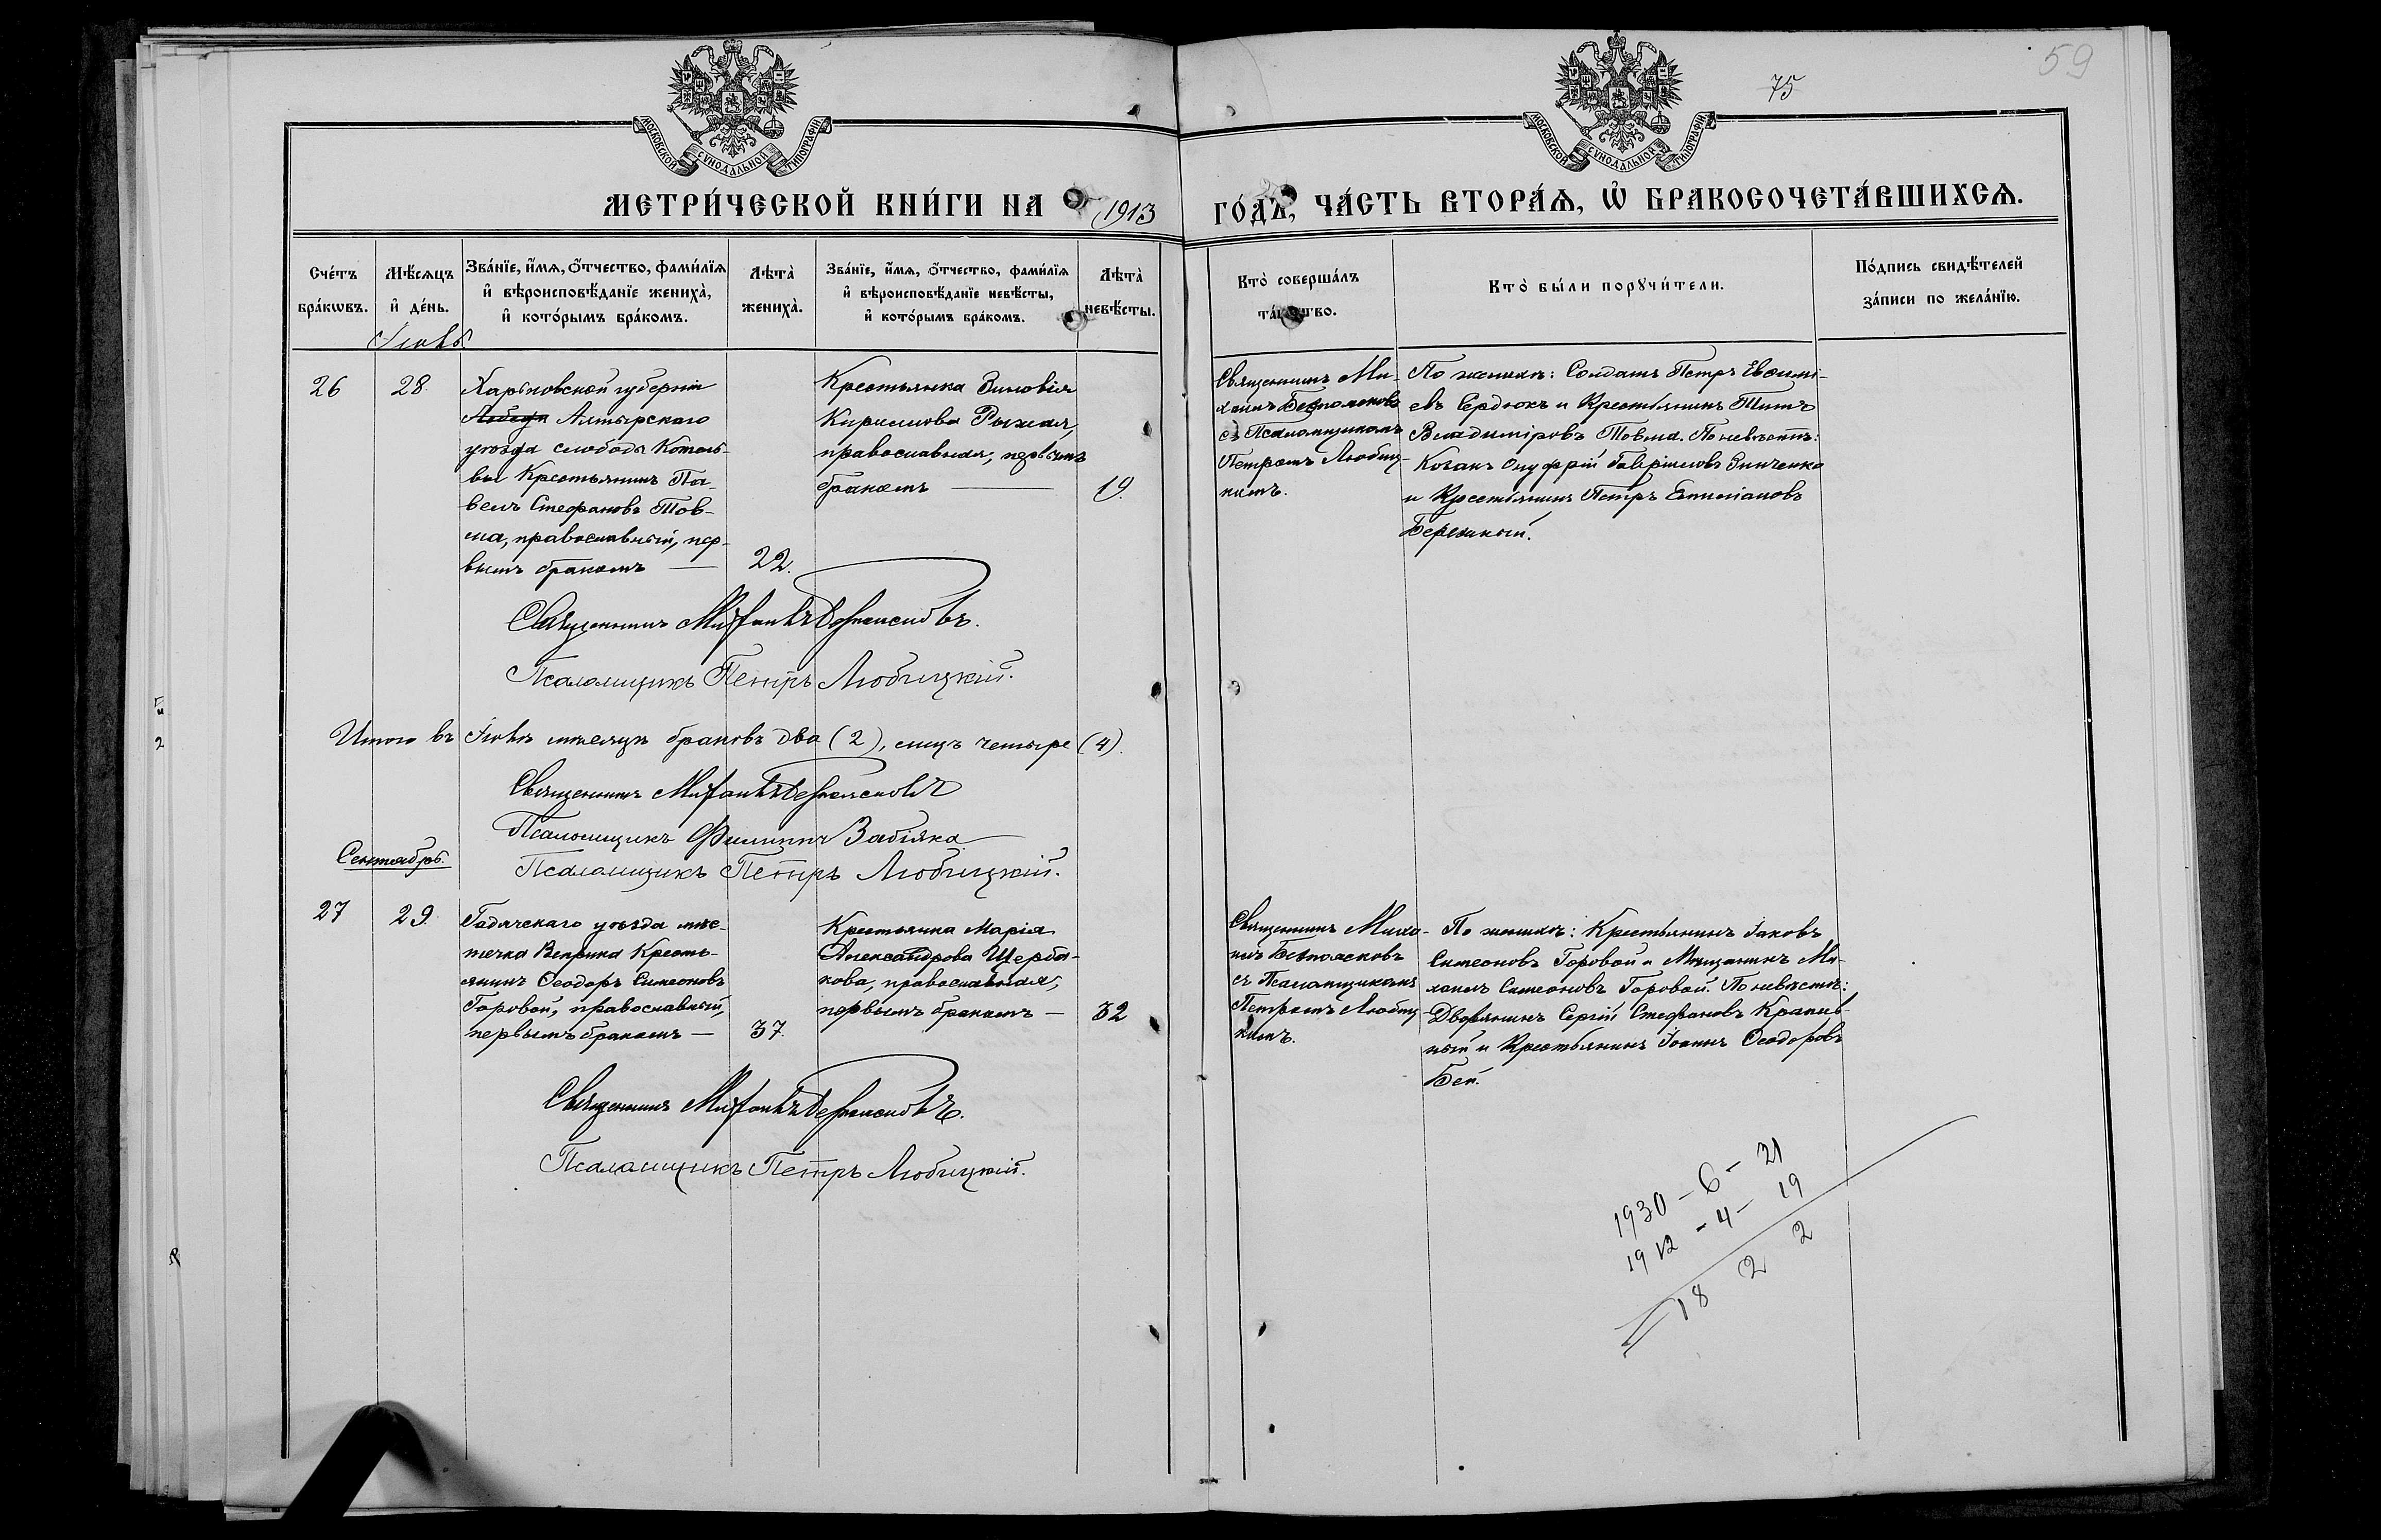 59
75
МОСКОВСКОЙ СѴНОДАЛЬНОЙ ТИПОГРАФІИ
МОСКОВСКОЙ СѴНОДАЛЬНОЙ ТИПОГРАФІИ
МЕТРИ́ЧЕСКОЙ КНИ́ГИ НА 1913
ГО́ДЪ, ЧА́СТЬ ВТОРА́Ѧ, Ѡ҆ БРАКОСОЧЕТА́ВШИХСѦ.
Сче́тъ бра́кѡвъ.
Мѣ́сѧцъ и҆ де́нь.
Зва́нїе, и҆́мѧ, ѻ҆́тчество, фами́лїѧ и҆ вѣроисповѣ́данїе жениха̀, и҆ кото́рымъ бра́комъ.
Лѣта̀ жениха̀.
Зва́нїе, и҆́мѧ, ѻ҆́тчество, фами́лїѧ и҆ вѣроисповѣ́данїе невѣ́сты, и҆ кото́рымъ бра́комъ.
Лѣта̀ невѣ́сты.
Кто̀ соверша́лъ та́инство.
Кто̀ бы́ли порꙋчи́тели.
По́дпись свидѣ́телей за́писи по жела́нїю.
26
28.
Харьковской губерніи
Ахтырскаго
уѣзда слободы Котель-
вы Крестьянинъ Па-
велъ Стефановъ Тов-
ма, православный, пер-
вымъ бракомъ
22.
Крестьянка Зиновія
Кириллова Рыжая,
православная, первымъ
бракомъ
19.
Священникъ Ми-
хаилъ Безпоясковъ
съ Псаломщикомъ
Петромъ Любиц-
кимъ.
По женихѣ: Солдатъ Петръ Евѳимі-
евъ Сердюкъ и Крестьянинъ Титъ
Владиміровъ Товма. По невѣстѣ:
Козакъ Онуфрій Гавріиловъ Зинченко
и Крестьянинъ Петръ Емиліановъ
Бережный.
Священникъ Михаилъ Безпоясковъ.
Псаломщикъ Петръ Любицкій.
Итого въ мѣсяцѣ браковъ два (2), лицъ четыре (4).
Священникъ Михаилъ Безпоясковъ
Псаломщикъ Филиппъ Забіяка
Псаломщикъ Петръ Любицкій.
Сентябрь.
27
29.
Гадячскаго уѣзда мѣс-
течка Веприка Кресть-
янинъ Ѳеодоръ Симеоновъ
Горовой, православный,
первымъ бракомъ
37.
Крестьянка Марія
Александрова Щерба-
кова, православная,
первымъ бракомъ
32
Священникъ Миха-
илъ Безпоясковъ
съ Псаломщикомъ
Петромъ Любиц-
кимъ.
По женихѣ: Крестьянинъ Іаковъ
Симеоновъ Горовой и Мѣщанинъ Ми-
хаилъ Симеоновъ Горовой. По невѣстѣ:
Дворянинъ Сергій Стефановъ Крапив-
ный и Крестьянинъ Іоаннъ Ѳеодоровъ
Бей.
Священникъ Михаилъ Безпоясковъ.
Псаломщикъ Петръ Любицкій.
1930 - 6 - 21
1912 - 4 - 19
18 2 2